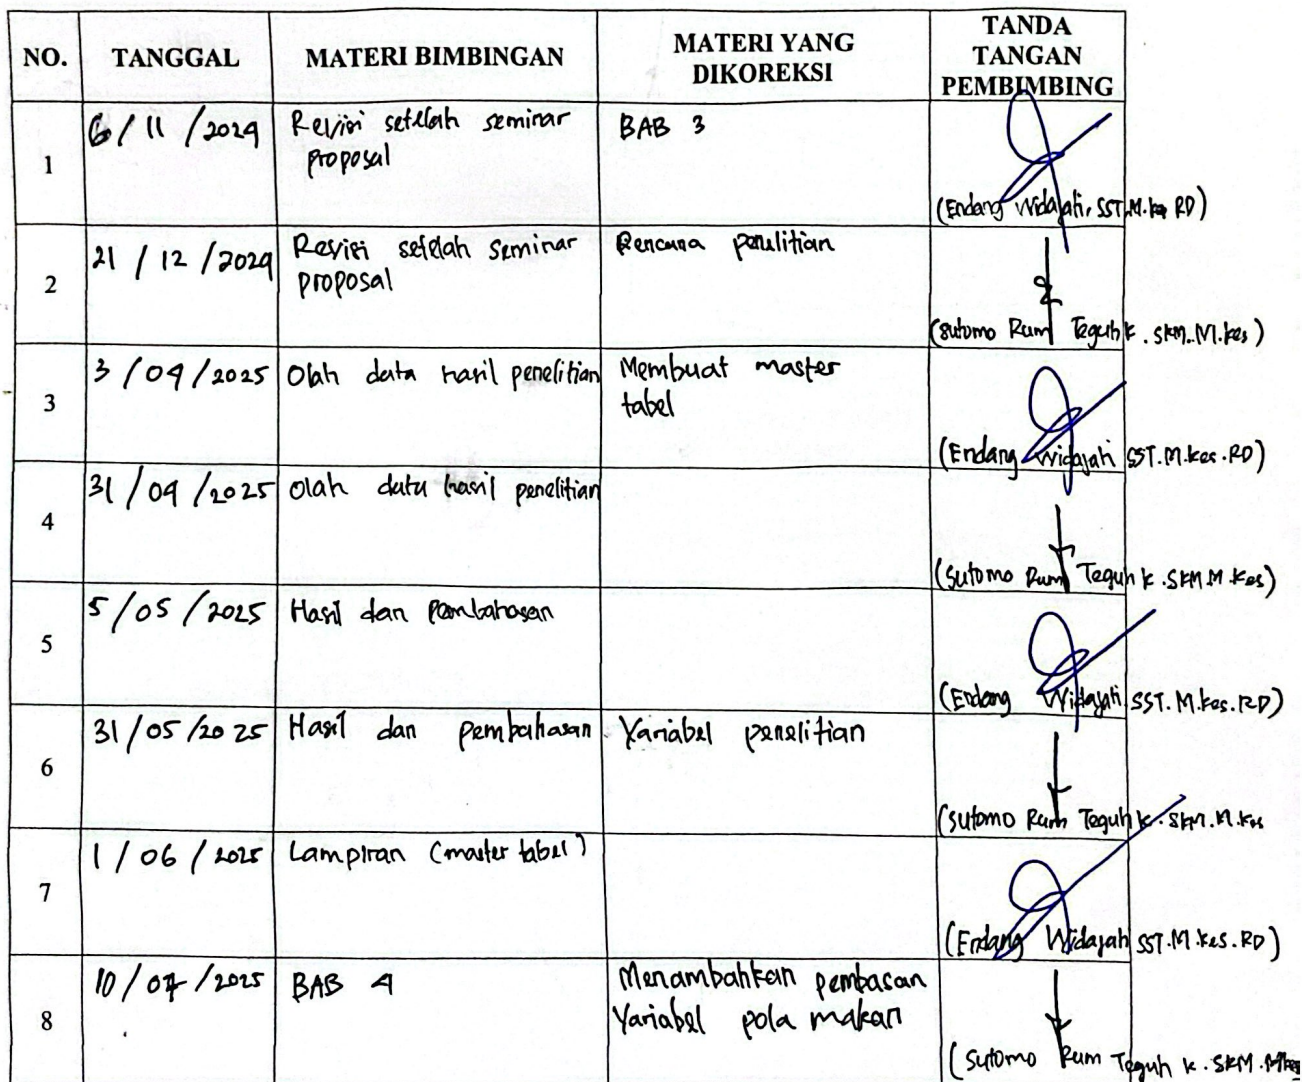 NO. TANGGAL MATERI BIMBINGAN MATERI YANG DIKOREKSI TANDA TANGAN PEMBIMBING
1 6/11/2024 Revisi setelah seminar BAB 3
proposal
(Endang Widajati, SST.M.Kes RD)
2 21/12/2024 Revisi setelah seminar Rencana penelitian
proposal
(Sutomo Rum Teguh K. SKM.M.Kes)
3 3/04/2025 Olah data hasil penelitian Membuat master
tabel
(Endang Widajati SST.M.Kes.RD)
4 31/04/2025 Olah data hasil penelitian
(Sutomo Rum Teguh K.SKM.M.Kes)
5 5/05/2025 Hasil dan Pembahasan
(Endang Widajati SST.M.Kes.RD)
6 31/05/2025 Hasil dan pembahasan Variabel penelitian
(Sutomo Rum Teguh K.SKM.M.Kes
7 1/06/2025 Lampiran (master tabel)
(Endang Widajati SST.M.Kes.RD)
8 10/07/2025 BAB 4 Menambahkan pembasan
Variabel pola makan
(Sutomo Rum Teguh K.SKM.M.Kes